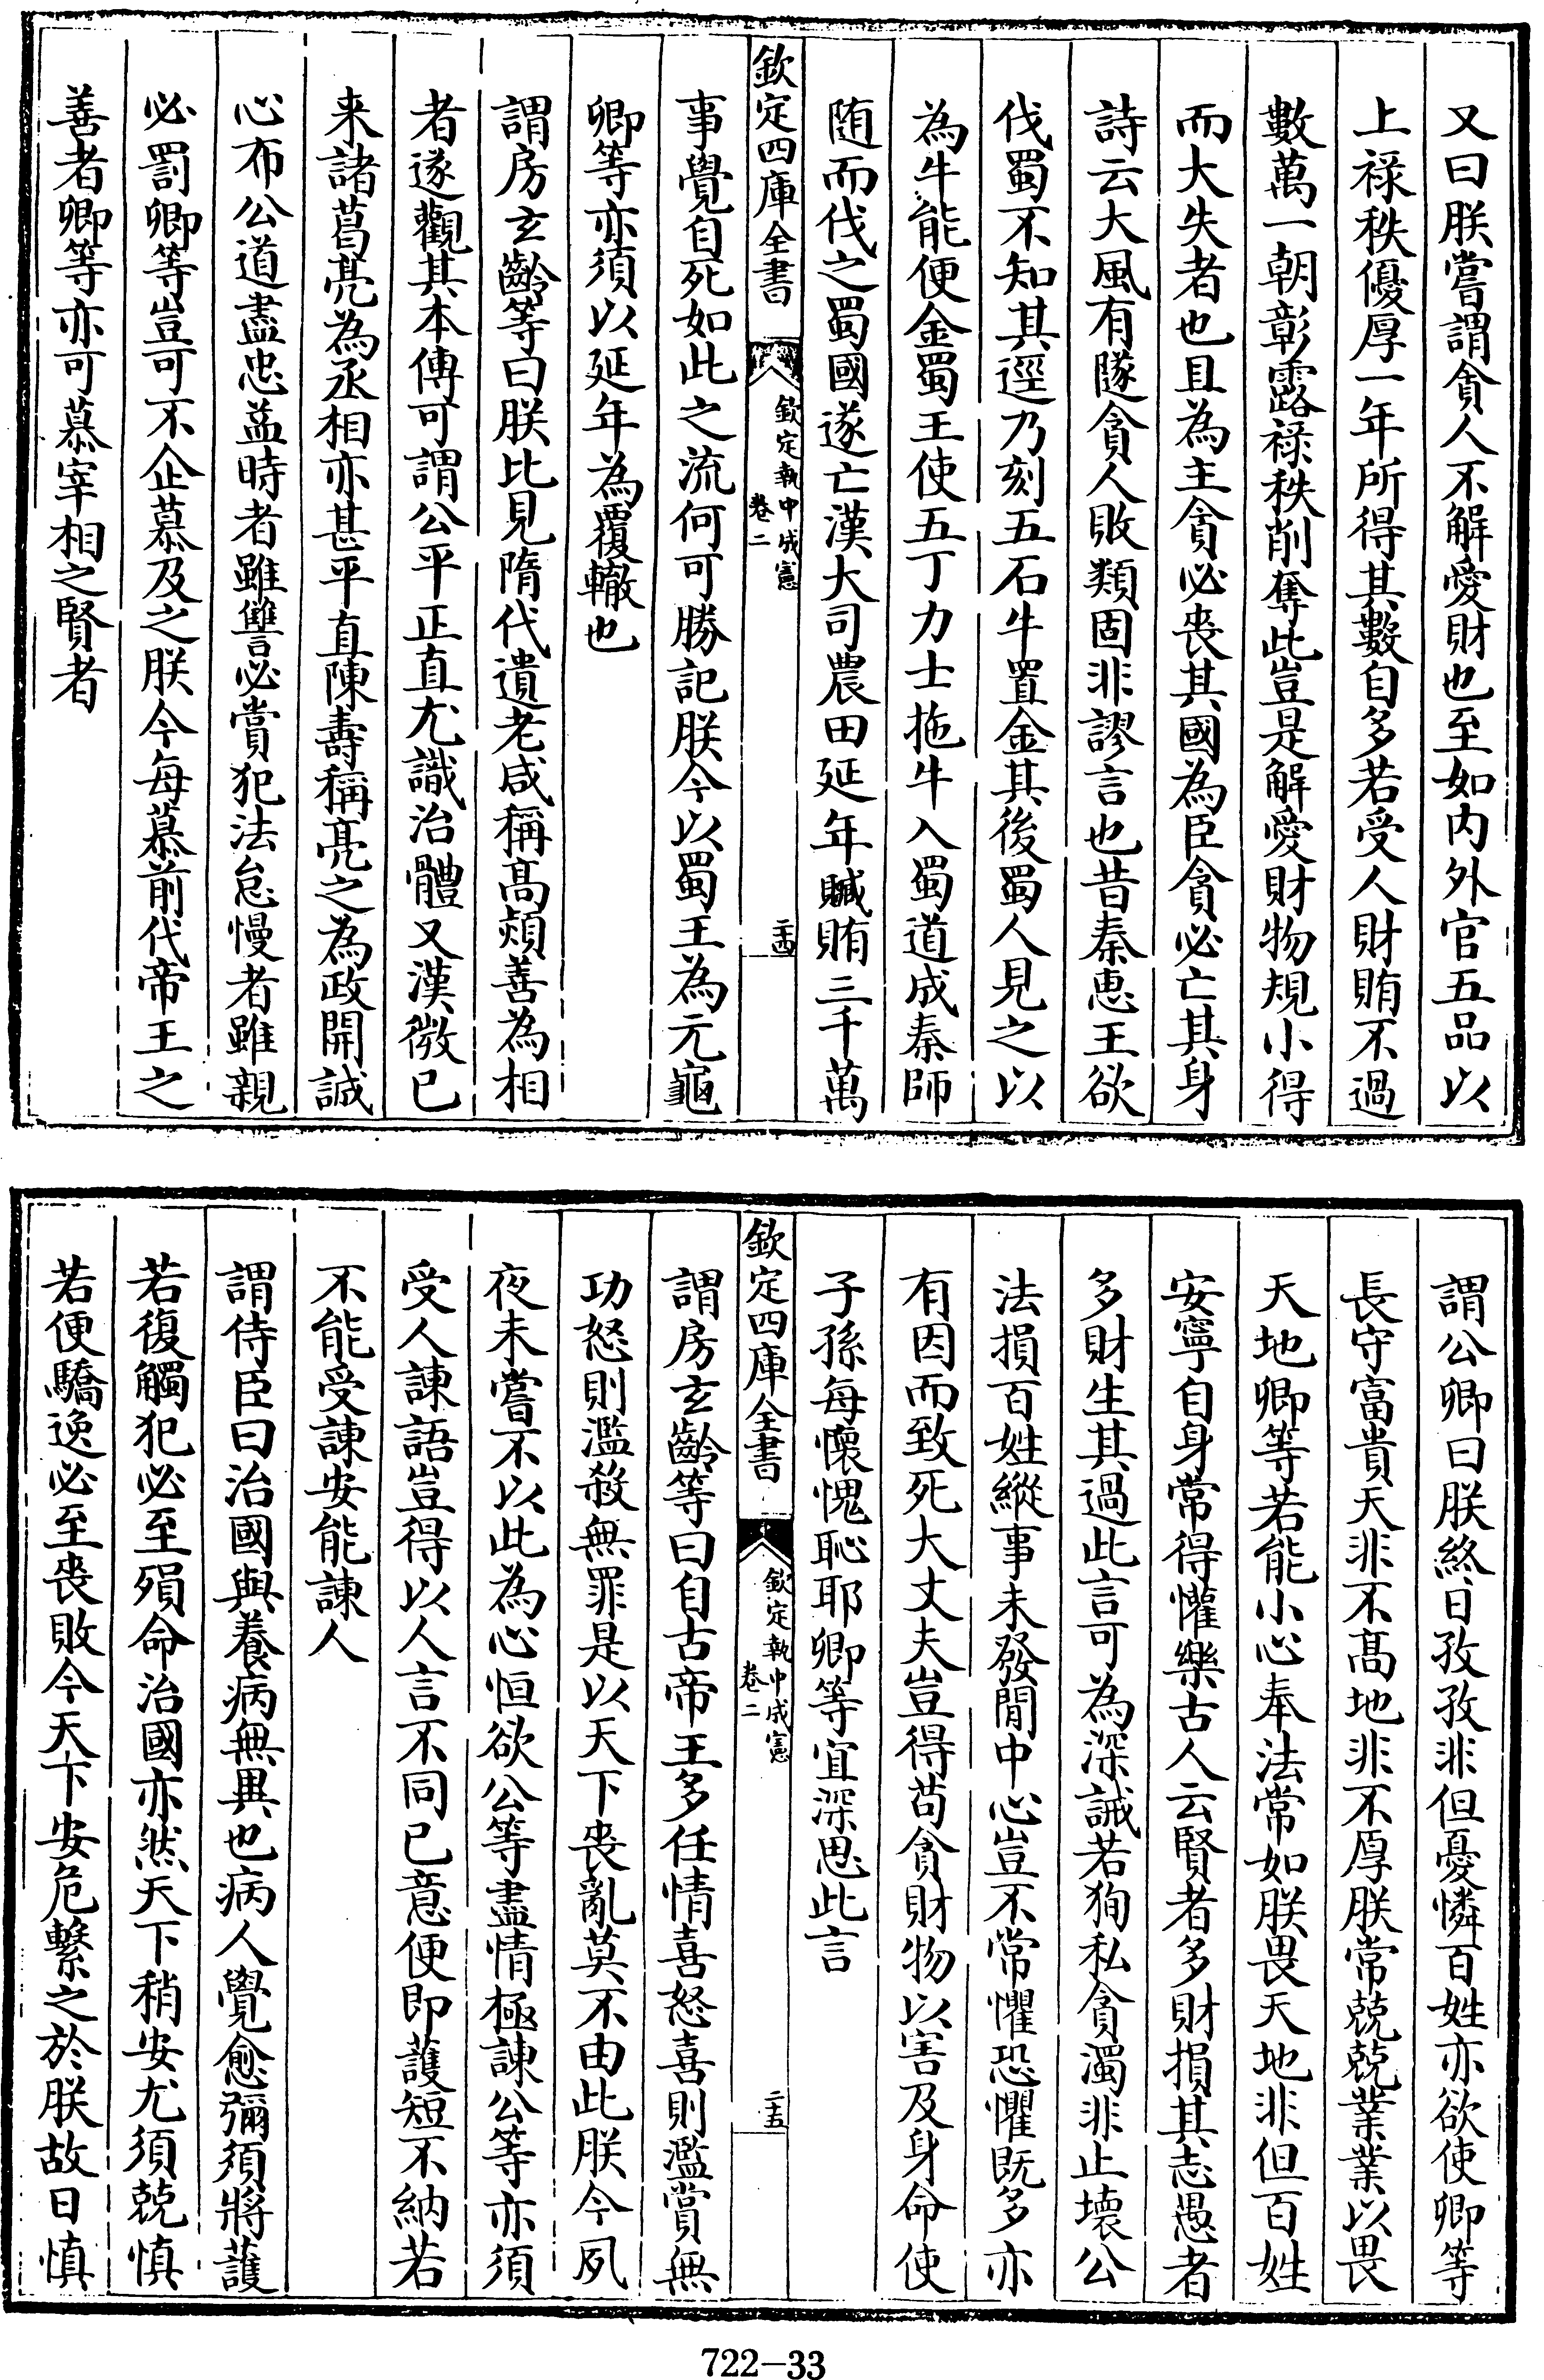 又曰朕嘗謂貪人不解愛財也至如内外官五品以
上祿秩優厚一年所得其數自多若受人財賄不過
數萬一朝彰露祿秩削奪此豈是解愛財物規小得
而大失者也且為主貪必喪其國為臣貪必亡其身
詩云大風有隧貪人敗類固非謬言也昔秦惠王欲
伐蜀不知其逕乃刻五石牛置金其後蜀人見之以
為牛能便金蜀王使五丁力士拖牛入蜀道成秦師
随而伐之蜀國遂亡漢大司農田延年贓賄三千萬
欽定四庫全書
欽定執中成憲
卷二
二十四
事覺自死如此之流何可勝記朕今以蜀王為元龜
卿等亦須以延年為覆轍也
謂房玄齡等曰朕比見隋代遺老咸稱髙熲善為相
者遂觀其本傳可謂公平正直尤識治體又漢微已
来諸葛亮為丞相亦甚平直陳壽稱亮之為政開誠
心布公道盡忠益時者雖讐必賞犯法怠慢者雖親
必罰卿等豈可不企慕及之朕今每慕前代帝王之
善者卿等亦可慕宰相之賢者
謂公卿曰朕終日孜孜非但憂憐百姓亦欲使卿等
長守富貴天非不髙地非不厚朕常兢兢業業以畏
天地卿等若能小心奉法常如朕畏天地非但百姓
安寧自身常得懽樂古人云賢者多財損其志愚者
多財生其過此言可為深誡若徇私貪濁非止壞公
法損百姓縱事未發聞中心豈不常懼恐懼既多亦
有因而致死大丈夫豈得苟貪財物以害及身命使
子孫每懷愧恥耶卿等宜深思此言
欽定四庫全書
欽定執中成憲
卷二
二十五
謂房玄齡等曰自古帝王多任情喜怒喜則濫賞無
功怒則濫殺無罪是以天下喪亂莫不由此朕今夙
夜未嘗不以此為心恒欲公等盡情極諫公等亦須
受人諫語豈得以人言不同已意便即護短不納若
不能受諫安能諫人
謂侍臣曰治國與養病無異也病人覺愈彌須將護
若復觸犯必至殞命治國亦然天下稍安尤須兢慎
若便驕逸必至喪敗今天下安危繫之於朕故日慎
722-33